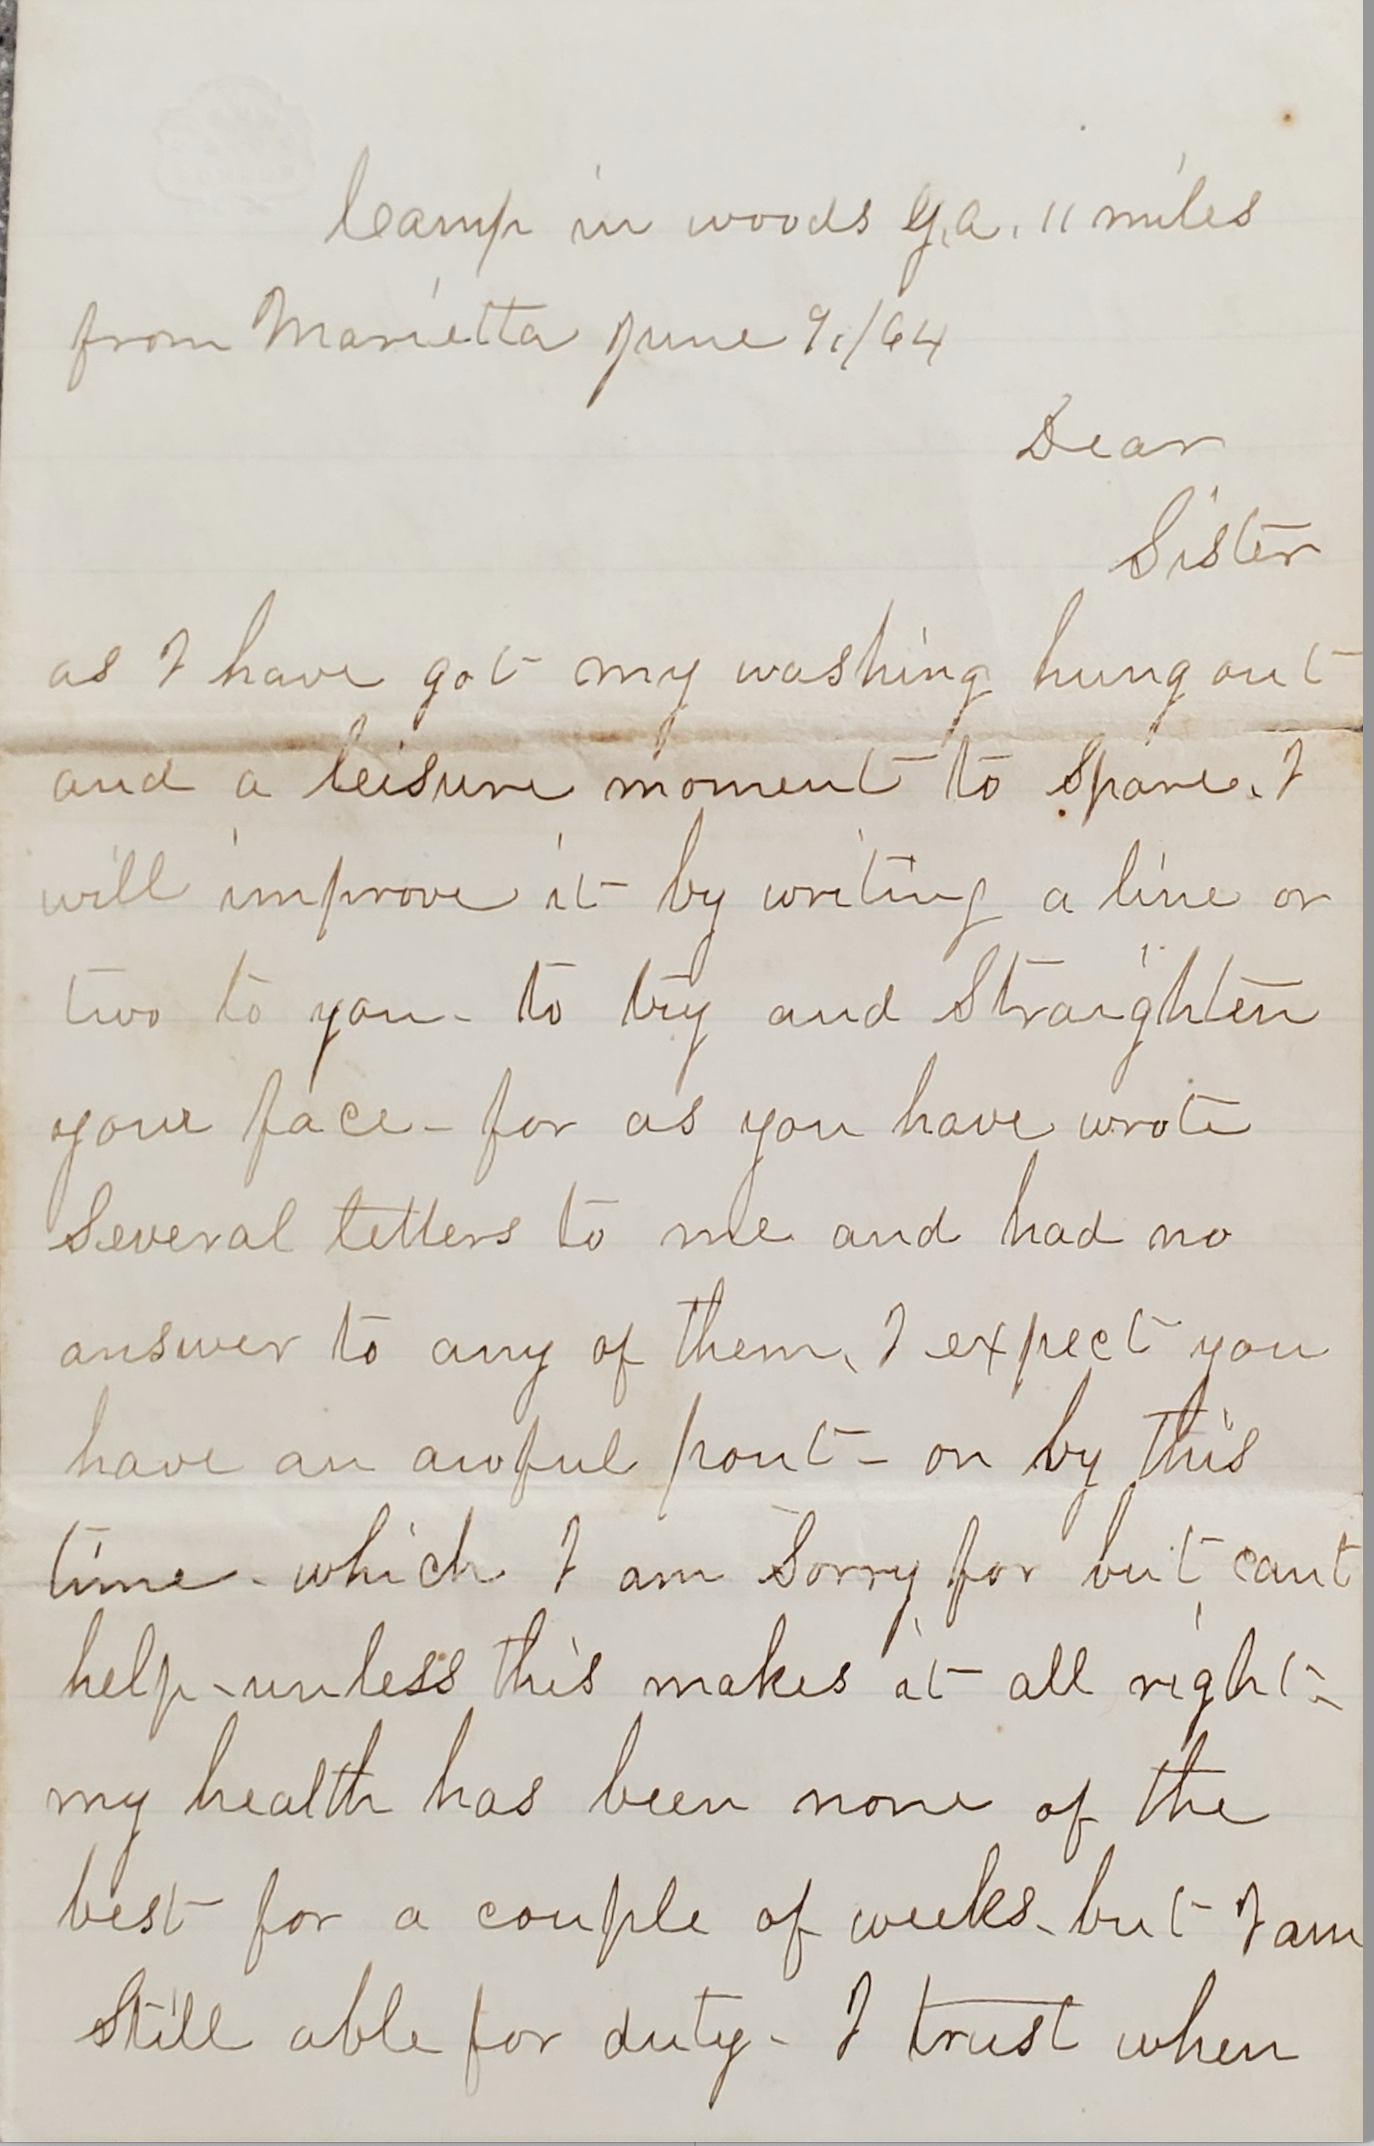 Camp in woods Ga. 11 miles
from Marietta June 9,/64
Dear
Sister
as I have got my washing hung out
and a leisure moment to spare. I
will improve it by writing a line or
two to you - to try and straighten
your face - for as you have wrote
Several letters to me and had no
answer to any of them, I expect you
have an awful pout - on by this
time - which I am Sorry for but cant
help - unless this makes it all right -
my health has been none of the
best for a couple of weeks - but I am
Still able for duty - I trust when